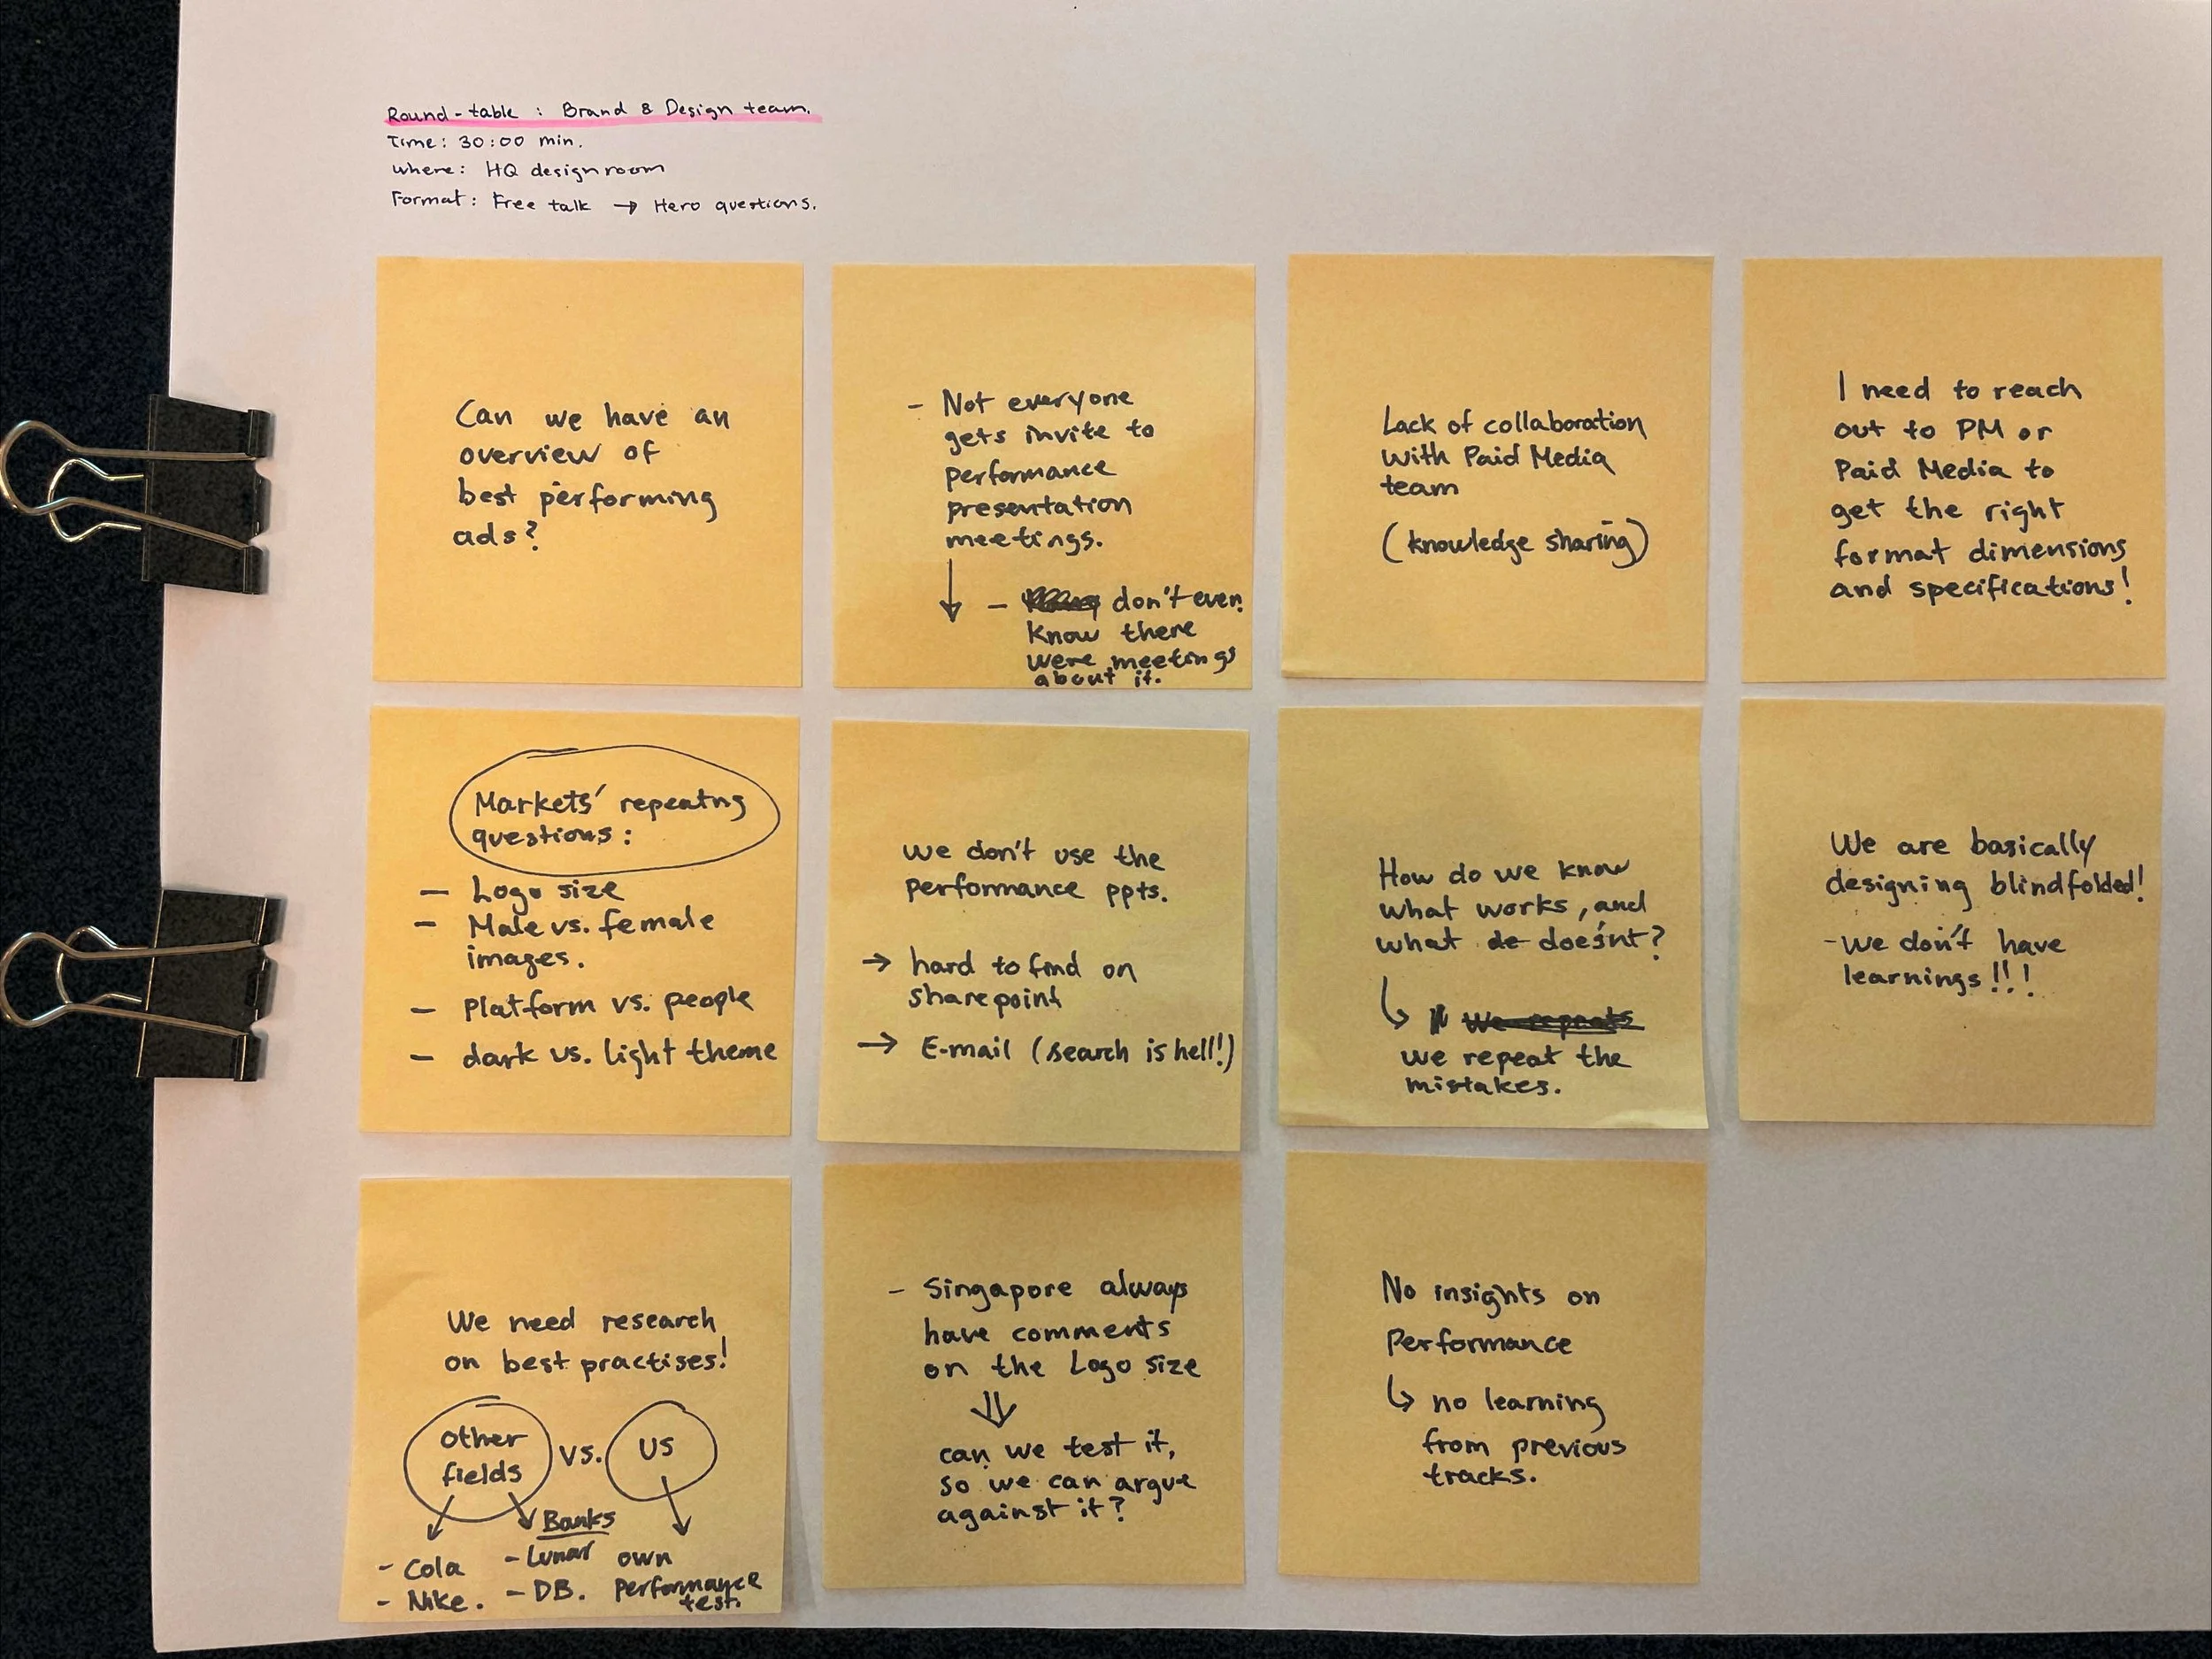 Round-table : Brand & Design team.
Time: 30:00 min.
where: HQ designroom
Format: Free talk → Hero questions.
Can we have an
overview of
best performing
ads?
- Not everyone
gets invite to
performance
presentation
meetings.
↓
- don't even
know there
were meetings
about it.
Lack of collaboration
with Paid Media
team
(knowledge sharing)
I need to reach
out to PM or
Paid Media to
get the right
format dimensions
and specifications!
Markets' repeatng
questions:
- Logo size
- Male vs. female
images.
- Platform vs. people
- dark vs. light theme
we don't use the
performance ppts.
→ hard to find on
sharepoint
→ E-mail (search is hell!)
How do we know
what works, and
what de doesn't?
↳ We repeats
we repeat the
mistakes.
We are basically
designing blindfolded!
- we don't have
learnings!!!
We need research
on best practises!
other
fields
vs.
us
- Cola
- Nike.
Banks
- Lunar
- DB.
own
performance
test.
- Singapore always
have comments
on the Logo size
⇓
can we test it,
so we can argue
against it?
No insights on
Performance
↳ no learning
from previous
tracks.